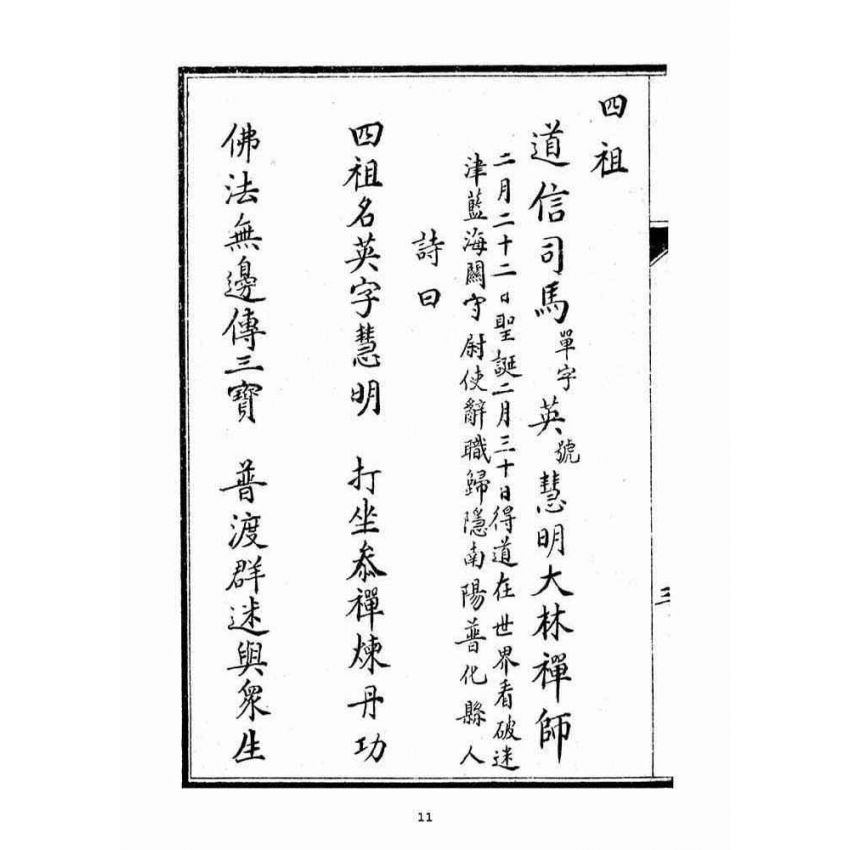 四祖
道信司馬單字英號慧明大林禪師
二月二十二日聖誕二月三十日得道在世界看破迷
津藍海關守尉使辭職歸隱南陽普化縣人
詩曰
四祖名英字慧明　打坐叅禪煉丹功
佛法無邊傳三寶　普渡群迷與衆生
三
11